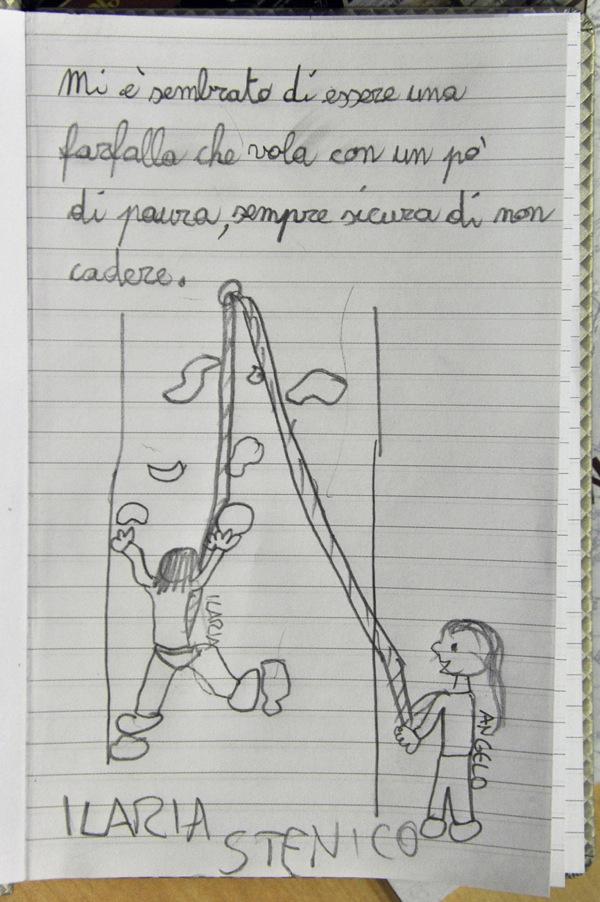 Mi è sembrato di essere una
farfalla che vola con un pò
di paura, sempre sicura di non
cadere.
ILARIA
ANGELO
ILARIA
STENICO